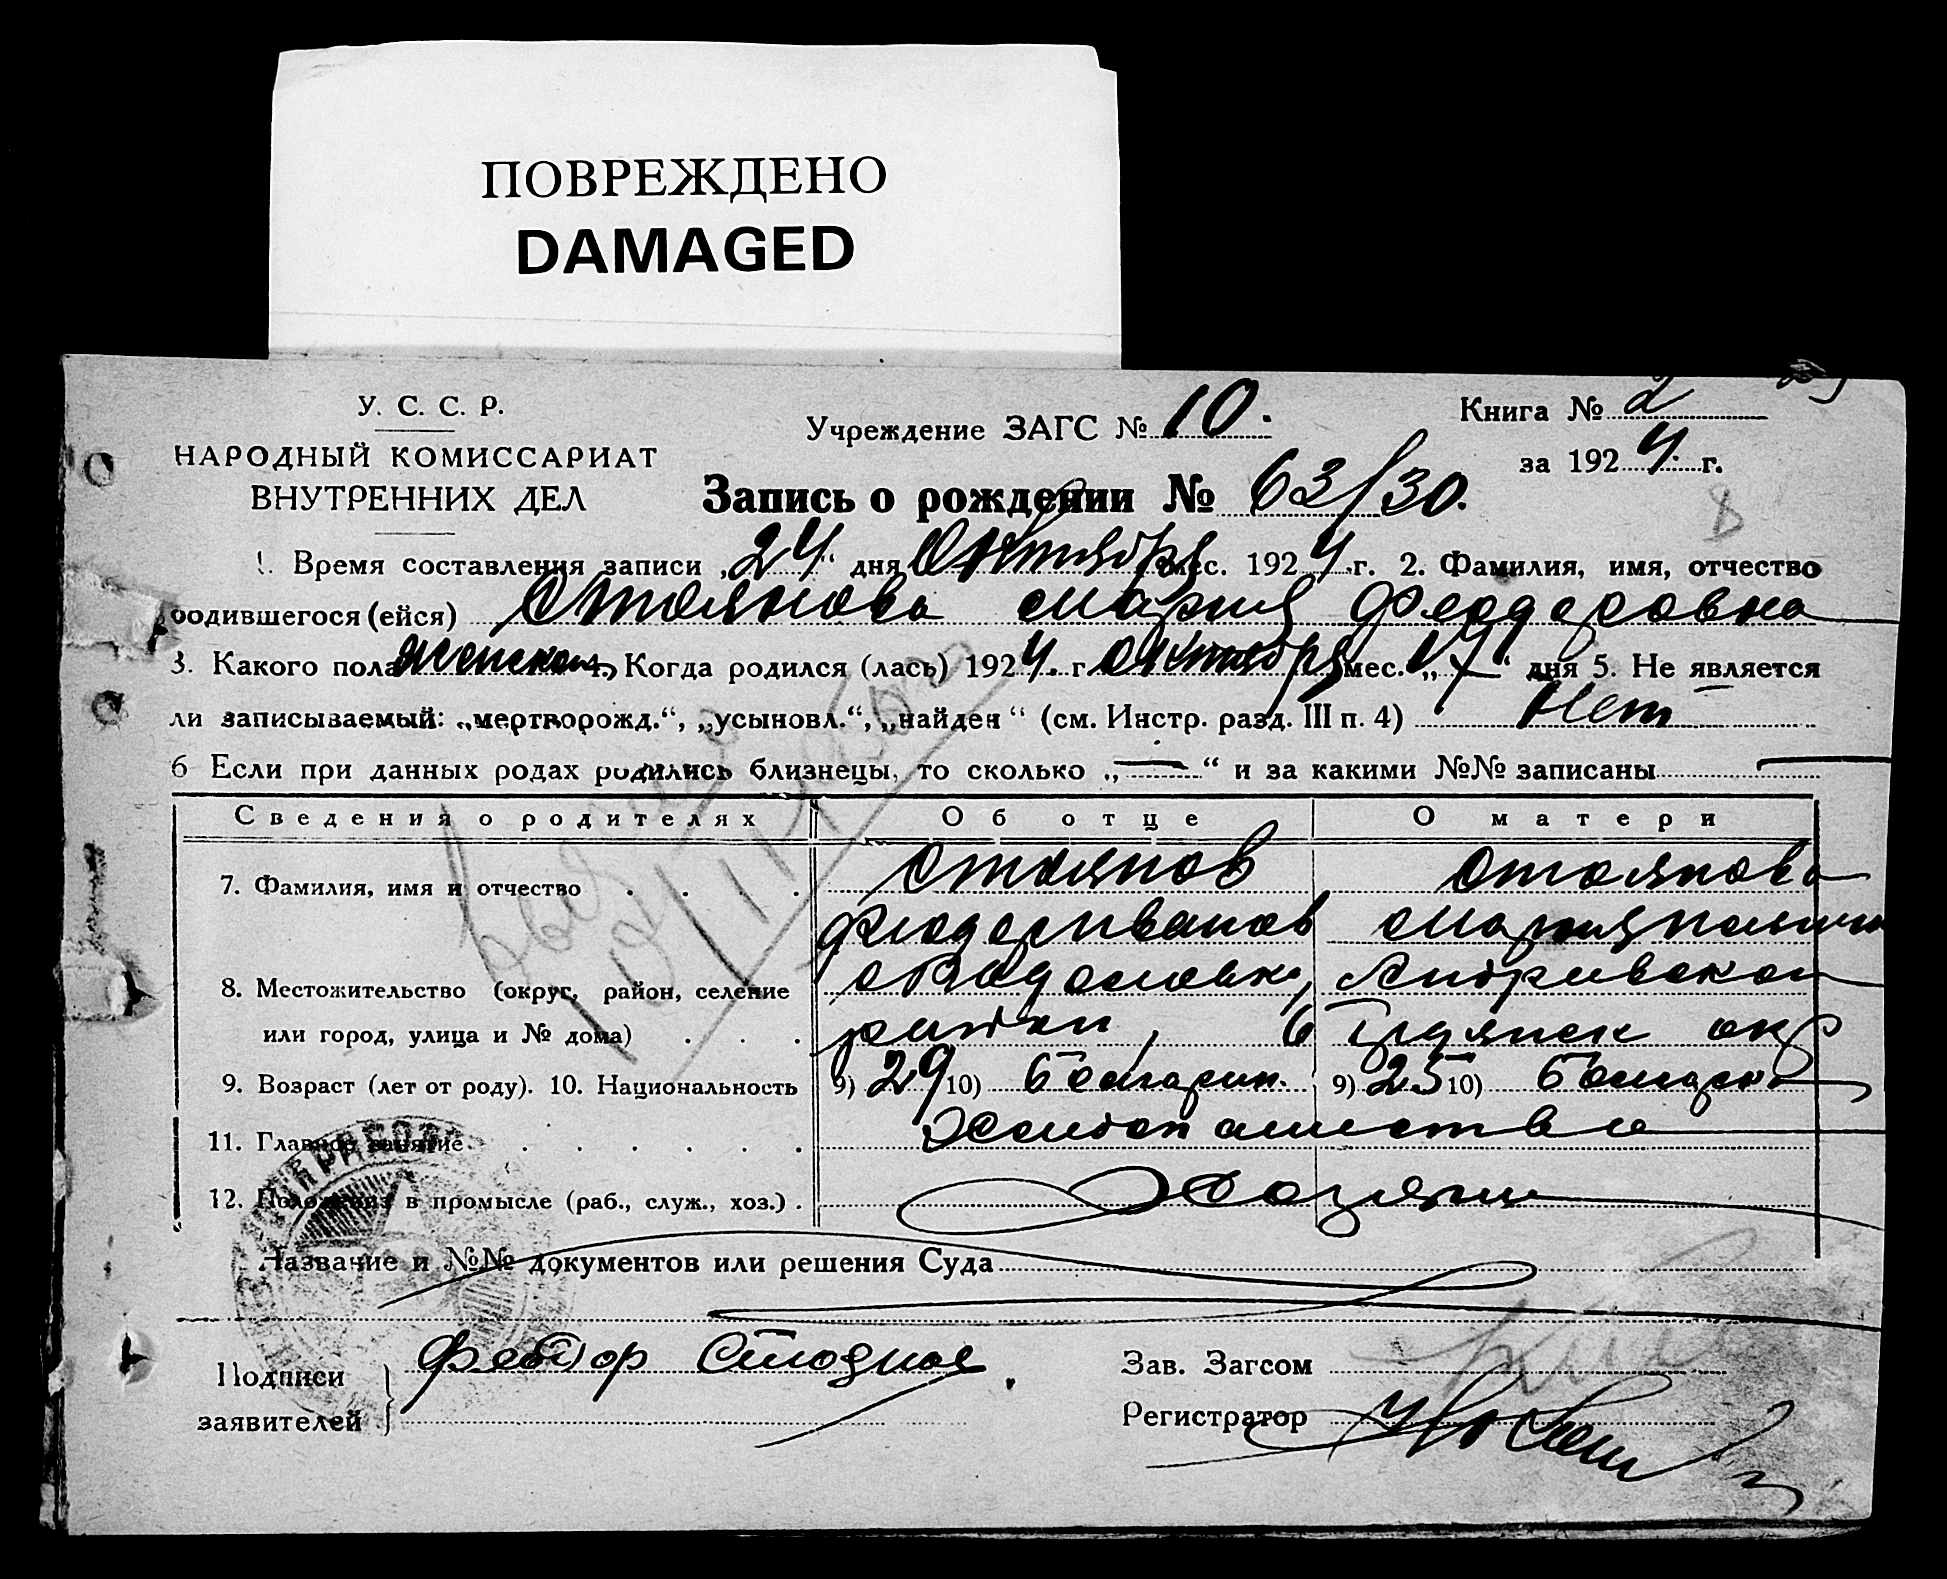 ПОВРЕЖДЕНО
DAMAGED
У. С. С. Р.
НАРОДНЫЙ КОМИССАРИАТ
ВНУТРЕННИХ ДЕЛ
Учреждение ЗАГС № 10.
Книга № 2
за 1924. г.
Запись о рождении № 63/30.
8
1. Время составления записи „24“ дня Октября мес. 1924 г. 2. Фамилия, имя, отчество
родившегося (ейся) Стоянова Мария Феодоровна
3. Какого пола женскаго 4. Когда родился (лась) 1924. г. Октября мес. „17“ дня 5. Не является
ли записываемый: „мертворожд.“, „усыновл.“, „найден“ (см. Инстр. разд. III п. 4) Нет
6 Если при данных родах родились близнецы, то сколько „—“ и за какими №№ записаны —
Сведения о родителях Об отце О матери
7. Фамилия, имя и отчество Стоянов Стоянова
Феодор Иванов Мария
8. Местожительство (округ, район, селение
или город, улица и № дома)
9. Возраст (лет от роду). 10. Национальность 9) 29 10) болгарин. 9) 25 10) болгарка
11. Главное занятие Хлебопашество
12. Положение в промысле (раб., служ., хоз.) Хозяин
Название и №№ документов или решения Суда
Подписи
заявителей
Федор Стоянов
Зав. Загсом
Регистратор